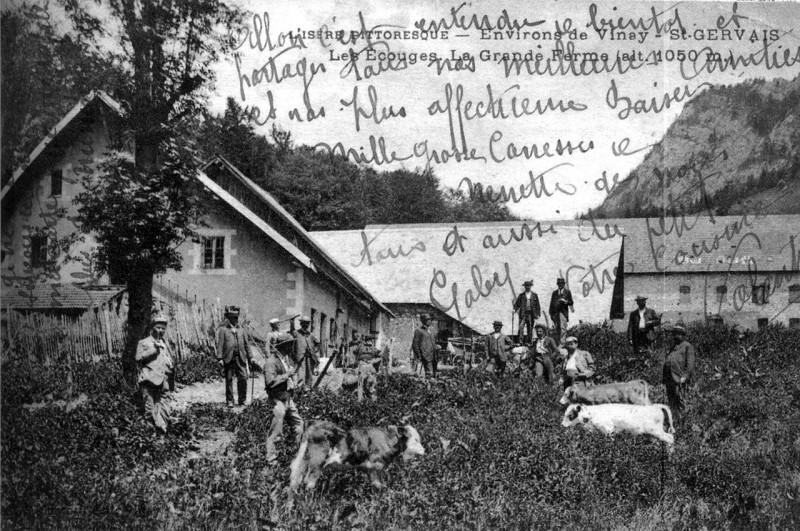 L'ISÈRE PITTORESQUE — Environs de Vinay - St-GERVAIS
Les Ecouges. La Grande Ferme (alt. 1050 m.)
Allons c'est entendu je bientot et
partages tous nos meilleures Amitiés
et nos plus affectueux Baisers
Mille grosses Caresses
menette de nous
tous et aussi du ptit
Gaby Votre cousine